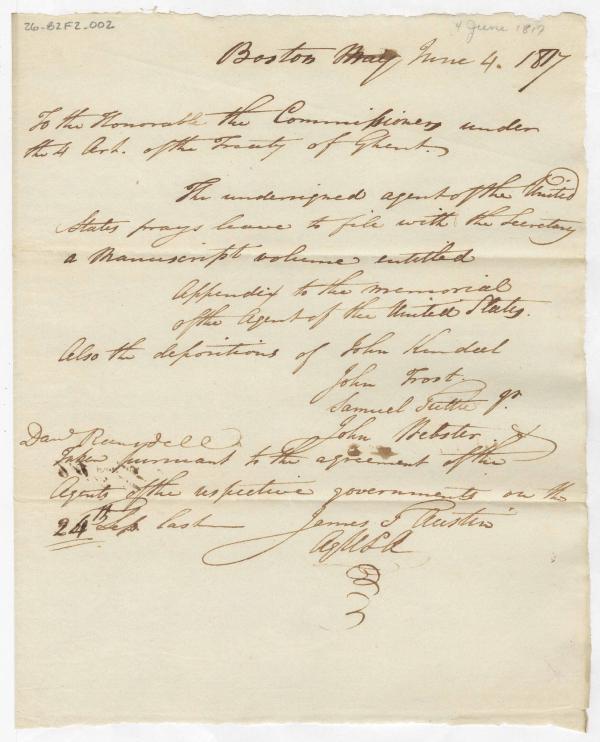 26-B2F2-002
4 June 1817
Boston May June 4. 1817
To the Honorable the Commissioners under
the 4 Art. of the Treaty of Ghent.
The undersigned agent of the United
States prays leave to file with the Secretary
a manuscript volume entitled
Appendix to the memorial
of the Agent of the United States.
Also the depositions of John
John Frost
Samuel Tuttle jr.
John Webster &
Danl
Taken pursuant to the agreement of the
Agents of the respective governments on the
24th Sep. last
James T Austin
AgUSA